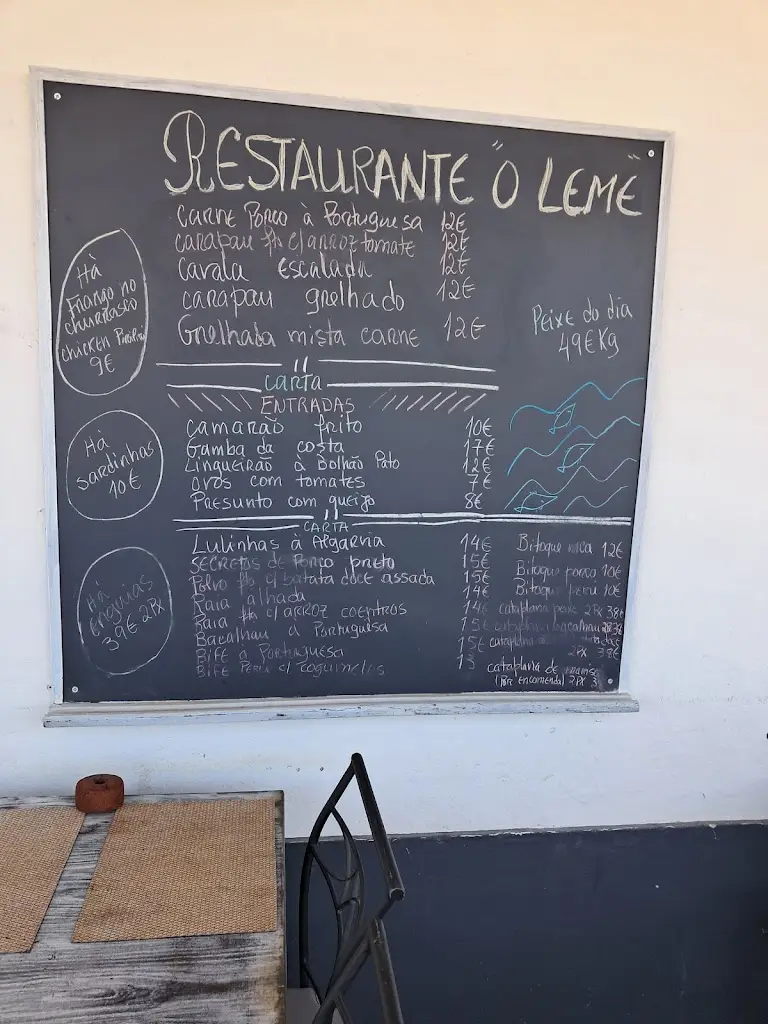 RESTAURANTE "O LEME"
Carne Porco à Portuguesa 12€
carapau fto c/arroz tomate 12€
cavala escalada 12€
carapau grelhado 12€
Grelhada mista carne 12€
Há
Frango no
churrasco
chicken
9€
Peixe do dia
49€ Kg
carta
ENTRADAS
camarão frito 10€
Gamba da costa 17€
Lingueirão à Bolhão Pato 12€
ovos com tomates 7€
Presunto com queijo 8€
Há
sardinhas
10€
CARTA
Lulinhas à Algarvia 14€
Secretos de Porco preto 15€
Polvo fto c/batata doce assada 15€
Raia alhada 14€
Raia fta c/arroz coentros 14€
Bacalhau à Portuguesa 15€
Bife à Portuguesa 15€
Bife Peru c/ cogumelos 13
Há
enguias
39€ 2Px
Bitoque vaca 12€
Bitoque porco 10€
Bitoque peru 10€
cataplana peixe 2Px 38€
cataplana bacalhau
cataplana
2Px 38€
cataplana de
(Por encomenda) 2Px